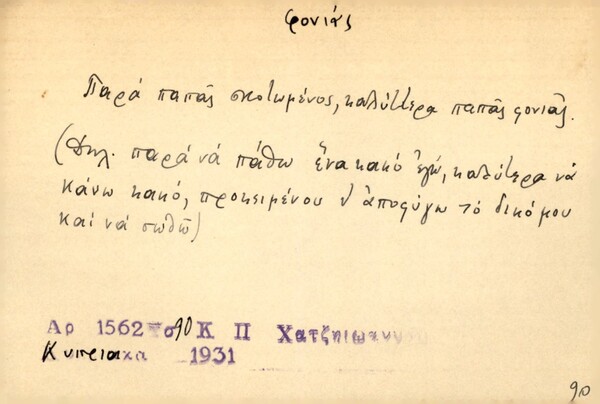 φονιάς
Παρά παπᾶς σκοτωμένος, καλύτερα παπᾶς φονιᾶς.
(Δηλ. παρά νά πάθω ἕνα κακό ἐγώ, καλύτερα νά
κάνω κακό, προκειμένου ν' ἀποφύγω τό δικό μου
καί νά σωθῶ)
Αρ 1562 σ 90 Κ Π Χατζηιωαννου
Κυπριακα 1931
90